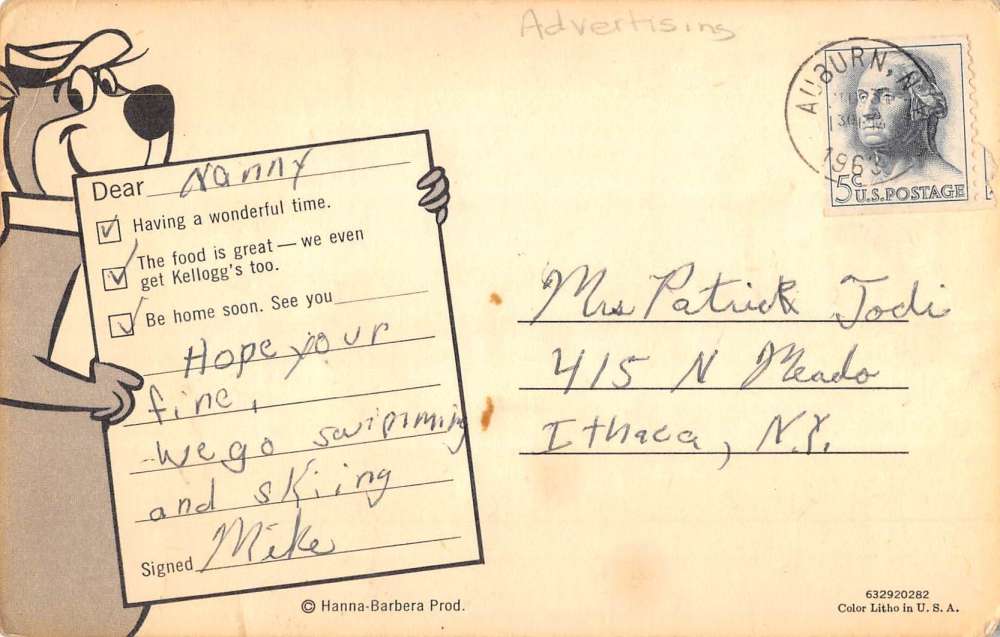 Advertising
AUBURN, N.Y.
1963
5c U.S. POSTAGE
Dear Nanny
Having a wonderful time.
The food is great — we even
get Kellogg's too.
Be home soon. See you
Hope your
fine,
We go swipmming
and skiing
Signed Mike
Mrs Patrick Jodi
415 N Meado
Ithaca, N.Y.
© Hanna-Barbera Prod.
632920282
Color Litho in U. S. A.